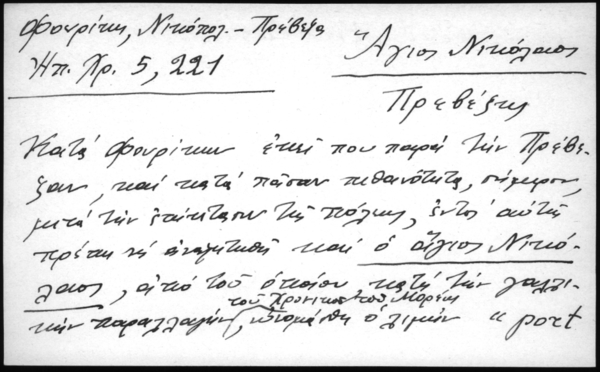 Φουρίκη, Νικόπολ. - Πρέβεζα
Ἠπ. Χρ. 5, 221
Ἅγιος Νικόλαος
Πρεβέζης
Κατά Φουρίκην ἐκεῖ που παρά τήν Πρέβε-
ζαν, καί κατά πᾶσαν πιθανότητα, σήμερον,
μετά τήν ἐπέκτασιν τῆς πόλεως, ἐντός αὐτῆς
πρέπει νά ἀναζητηθῇ καί ὁ ἅγιος Νικό-
λαος, ἀπό τοῦ ὁποίου, κατά τήν γαλλι-
κήν παραλλαγήν τοῦ Χρονικοῦ τοῦ Μορέως, ὠνομάσθη ὁ λιμήν "port